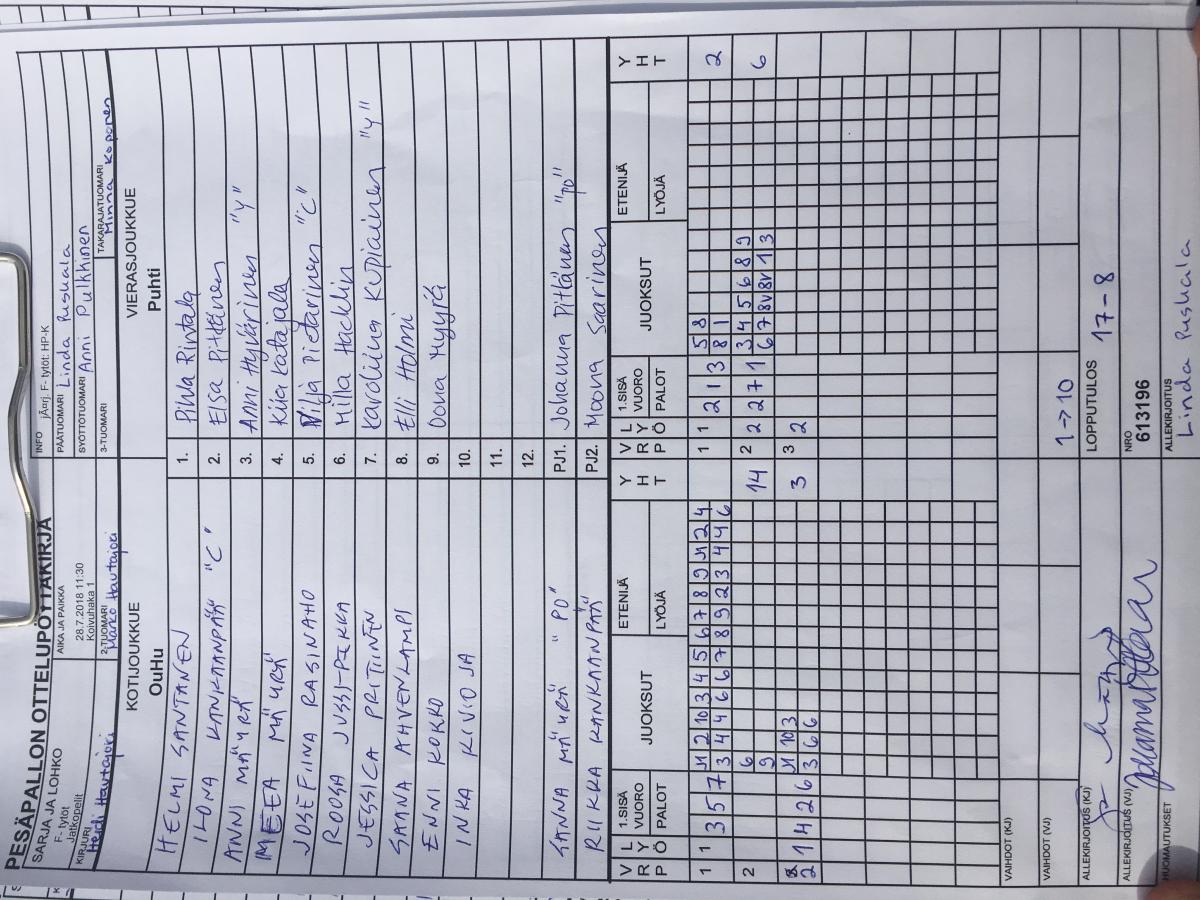 PESÄPALLON OTTELUPÖYTÄKIRJA
SARJA JA LOHKO
F- tytöt
Jatkopelit
AIKA JA PAIKKA
28.7.2018 11:30
Koivuhaka 1
INFO jÃ¤rj. F- tytöt: HP-K
PÄÄTUOMARI Linda Puskala
SYÖTTÖTUOMARI Anni Pulkkinen
KIRJURI Heidi Hautajoki
2-TUOMARI Marko Hautajoki
3-TUOMARI
TAKARAJATUOMARI Minna Koponen
KOTIJOUKKUE
OuHu
VIERASJOUKKUE
Puhti
HELMI SANTANEN 1. Pihla Rintala
ILONA KANKAANPÄÄ "C" 2. Elsa Pittänen
ANNI MÄYRÄ 3. Anni Hyvärinen "Y"
MEEA MÄYRÄ 4. Kiia Katajala
JOSEFIINA RASINAHO 5. Vilja Pietarinen "C"
ROOSA JUSSI-PEKKA 6. Milla Hacklin
JESSICA PRITTINEN 7. Karoliina Kupiainen "Y"
SAANA AHVENLAMPI 8. Elli Holmi
ENNI KOKKO 9. Oona Myyrä
INKA KIVIOJA 10.
11.
12.
SANNA MÄYRÄ "PO" PJ1. Johanna Pittänen "po"
RIIKKA KANKAANPÄÄ PJ2. Moona Saarinen
V R P L Y Ö 1.SISÄ VUORO PALOT JUOKSUT ETENIJÄ LYÖJÄ Y H T
V R P L Y Ö 1.SISÄ VUORO PALOT JUOKSUT ETENIJÄ LYÖJÄ Y H T
1 1 3 5 7 1 2 10 3 4 5 6 7 8 9 1 2 4
3 4 4 6 6 7 8 9 2 3 4 4 6
1 1 2 1 3 5 8 2
8 1
2 6 14
9
2 2 2 7 1 3 4 5 6 8 9 6
6 7 8v 8v 1 3
2 1 4 2 6 1 10 3 3
3 6 6
3 2
VAIHDOT (KJ)
VAIHDOT (VJ) 1→10
ALLEKIRJOITUS (KJ)
LOPPUTULOS 17-8
ALLEKIRJOITUS (VJ)
NRO
613196
HUOMAUTUKSET
ALLEKIRJOITUS
Linda Puskala